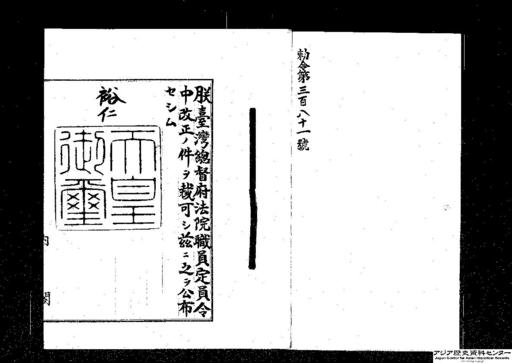 勅令第三百八十一號
朕臺灣總督府法院職員定員令
中改正ノ件ヲ裁可シ茲ニ之ヲ公布
セシム
裕仁
天皇
御璽
内閣
アジア歴史資料センター
Japan Center for Asian Historical Records